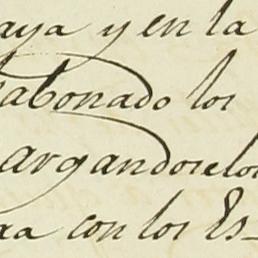 aya y en la
abonado los
argandoselos
xa con los Es-